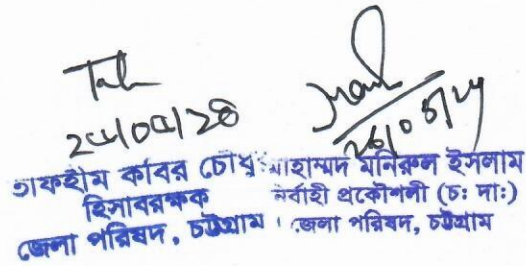 তাফহীম কবির চৌধু
হিসাবরক্ষক
জেলা পরিষদ, চট্টগ্রাম
মোহাম্মদ মনিরুল ইসলাম
নির্বাহী প্রকৌশলী (চ: দা:)
জেলা পরিষদ, চট্টগ্রাম